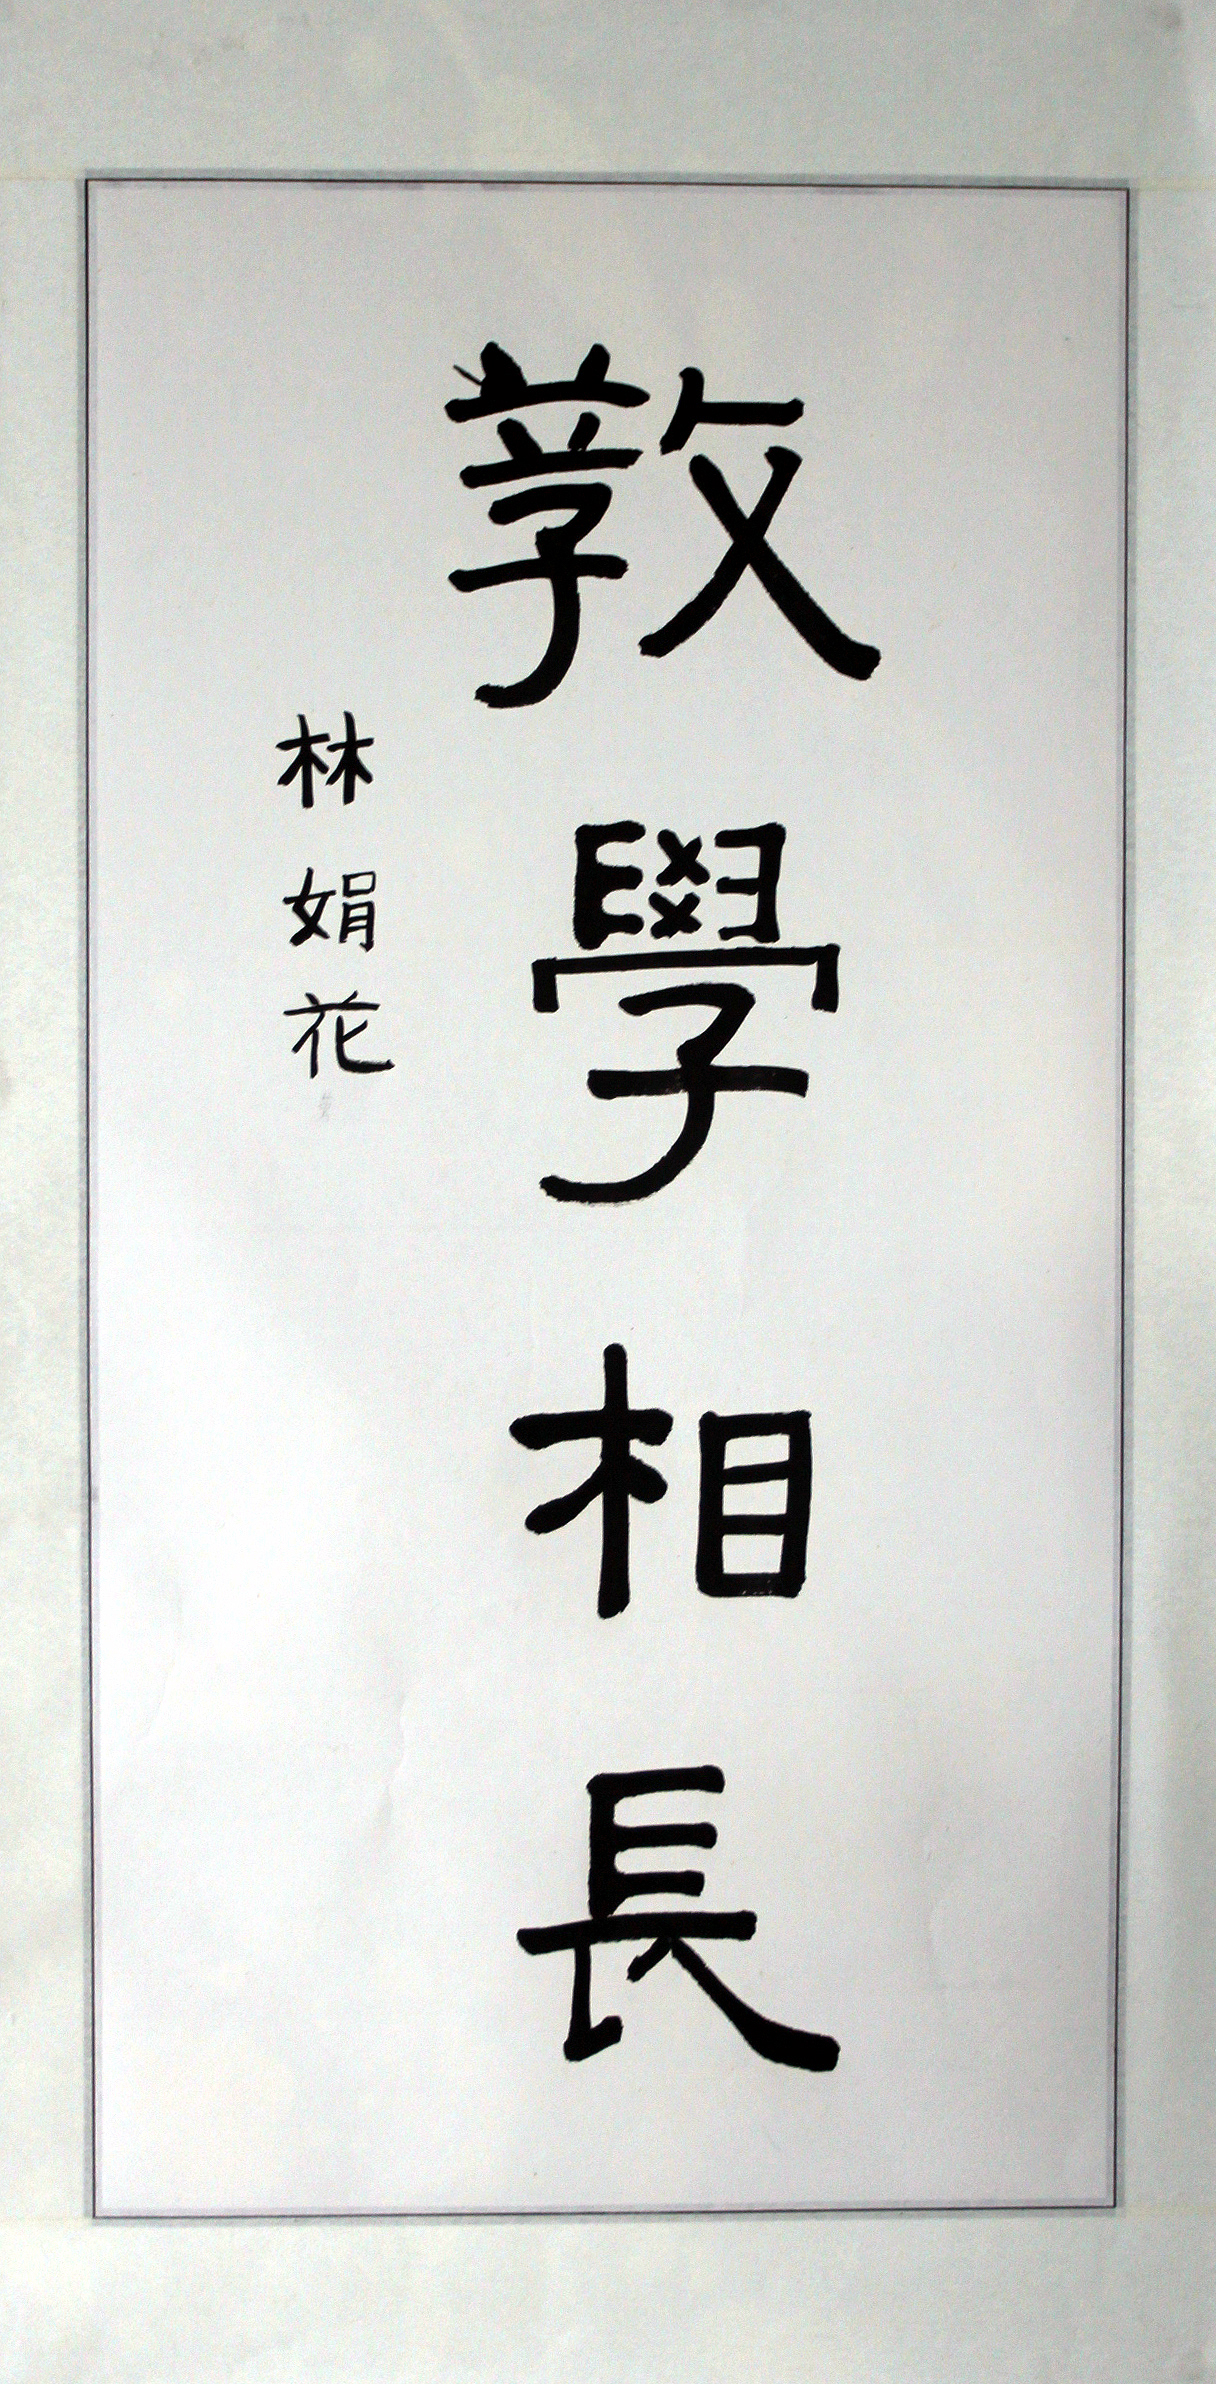 教學相長
林娟花